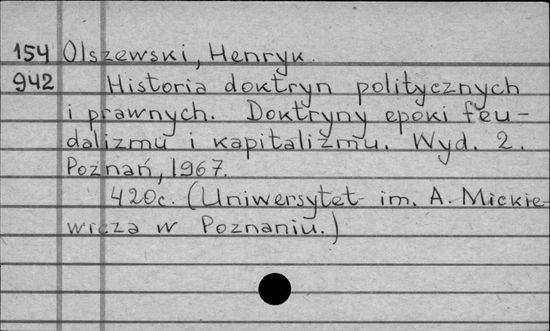 154 Olszewski, Henryk.
942 Historia doktryn politycznych
i prawnych. Doktryny epoki feu-
dalizmu i kapitalizmu. Wyd. 2.
Poznań, 1967.
420c. (Uniwersytet im. A. Mickie-
wicza w Poznaniu.)